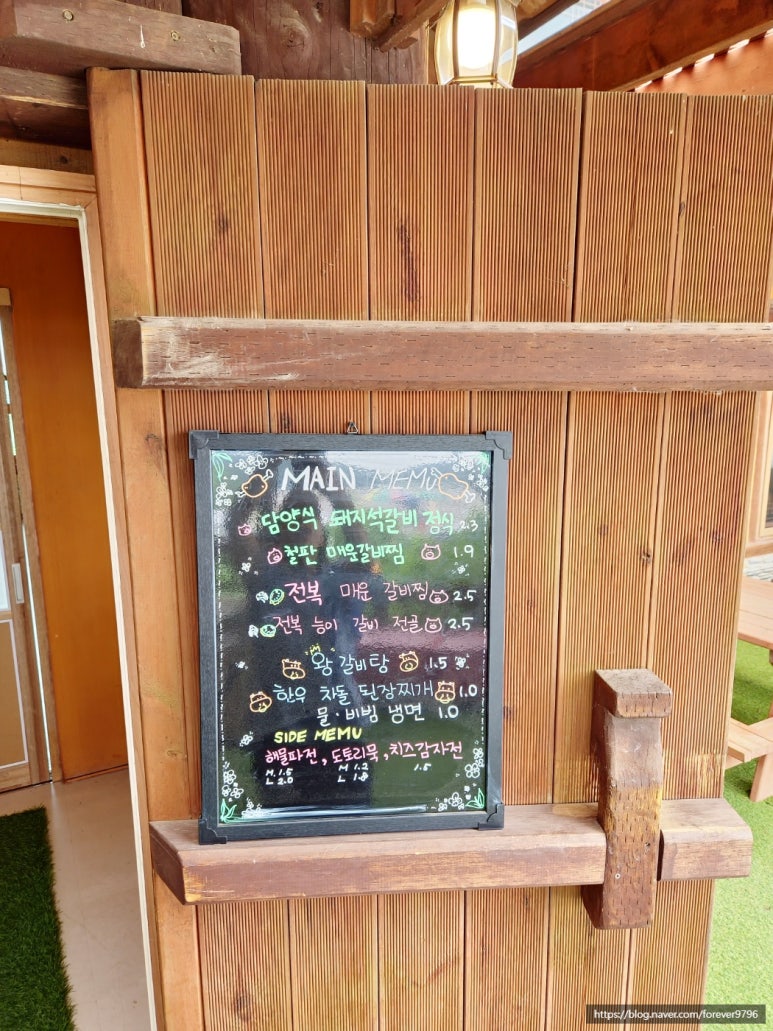 MAIN MEMU
담양식 돼지석갈비 정식 2.3
철판 매운갈비찜 1.9
전복 매운 갈비찜 2.5
전복 능이 갈비 전골 2.5
왕갈비탕 1.5
한우 차돌 된장찌개 1.0
물·비빔 냉면 1.0
SIDE MEMU
해물파전, 도토리묵, 치즈감자전
M. 1.5 M 1.2 1.5
L 2.0 L 1.8
https://blog.naver.com/forever9796